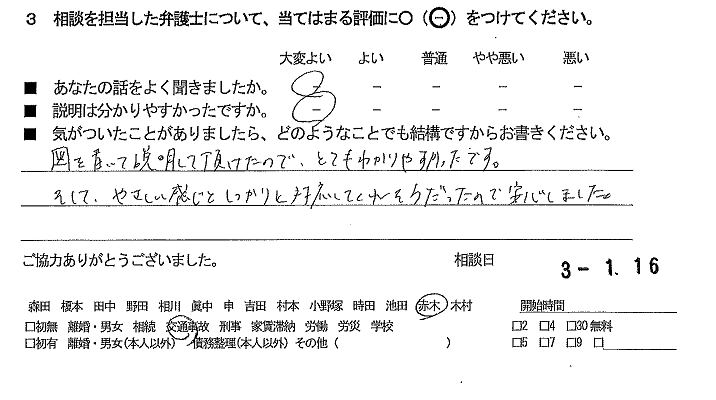 3 相談を担当した弁護士について、当てはまる評価に○(⊖)をつけてください。
大変よい よい 普通 やや悪い 悪い
■ あなたの話をよく聞きましたか。 − − − − −
■ 説明は分かりやすかったですか。 − − − − −
■ 気がついたことがありましたら、どのようなことでも結構ですからお書きください。
図を書いて説明して頂けたので、とてもわかりやすかったです。
そして、やさしい感じとしっかりと対応してくれそうだったので安心しました。
ご協力ありがとうございました。 相談日 3-1.16
森田 榎本 田中 野田 相川 眞中 申 吉田 村本 小野塚 時田 池田 赤木 木村 開始時間
□初無 離婚・男女 相続 交通事故 刑事 家賃滞納 労働 労災 学校 □2 □4 □30無料
□初有 離婚・男女(本人以外) 債務整理(本人以外) その他( ) □5 □7 □9 □